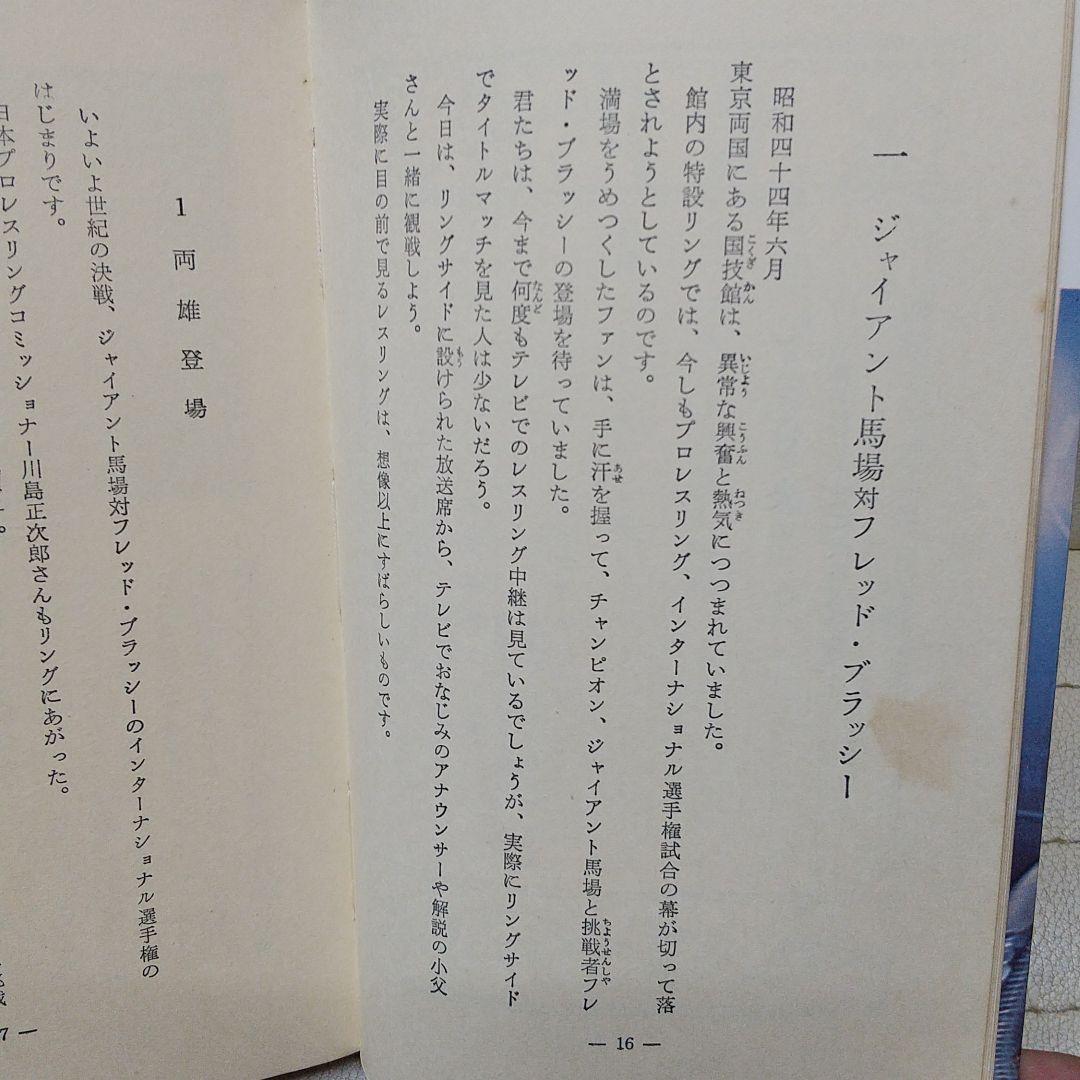 一　ジャイアント馬場対フレッド・ブラッシー
昭和四十四年六月
東京両国にある国技館は、異常な興奮と熱気につつまれていました。
こくぎかん
いじよう
こうふん
ねつき
館内の特設リングでは、今しもプロレスリング、インターナショナル選手権試合の幕が切って落
とされようとしているのです。
満場をうめつくしたファンは、手に汗を握って、チャンピオン、ジャイアント馬場と挑戦者フレ
あせ
ちようせんしや
ッド・ブラッシーの登場を待っていました。
君たちは、今まで何度もテレビでのレスリング中継は見ているでしょうが、実際にリングサイド
なんど
でタイトルマッチを見た人は少ないだろう。
今日は、リングサイドに設けられた放送席から、テレビでおなじみのアナウンサーや解説の小父
もう
さんと一緒に観戦しよう。
実際に目の前で見るレスリングは、想像以上にすばらしいものです。
— 16 —
1　両雄登場
いよいよ世紀の決戦、ジャイアント馬場対フレッド・ブラッシーのインターナショナル選手権の
はじまりです。
日本プロレスリングコミッショナー川島正次郎さんもリングにあがった。
7 —